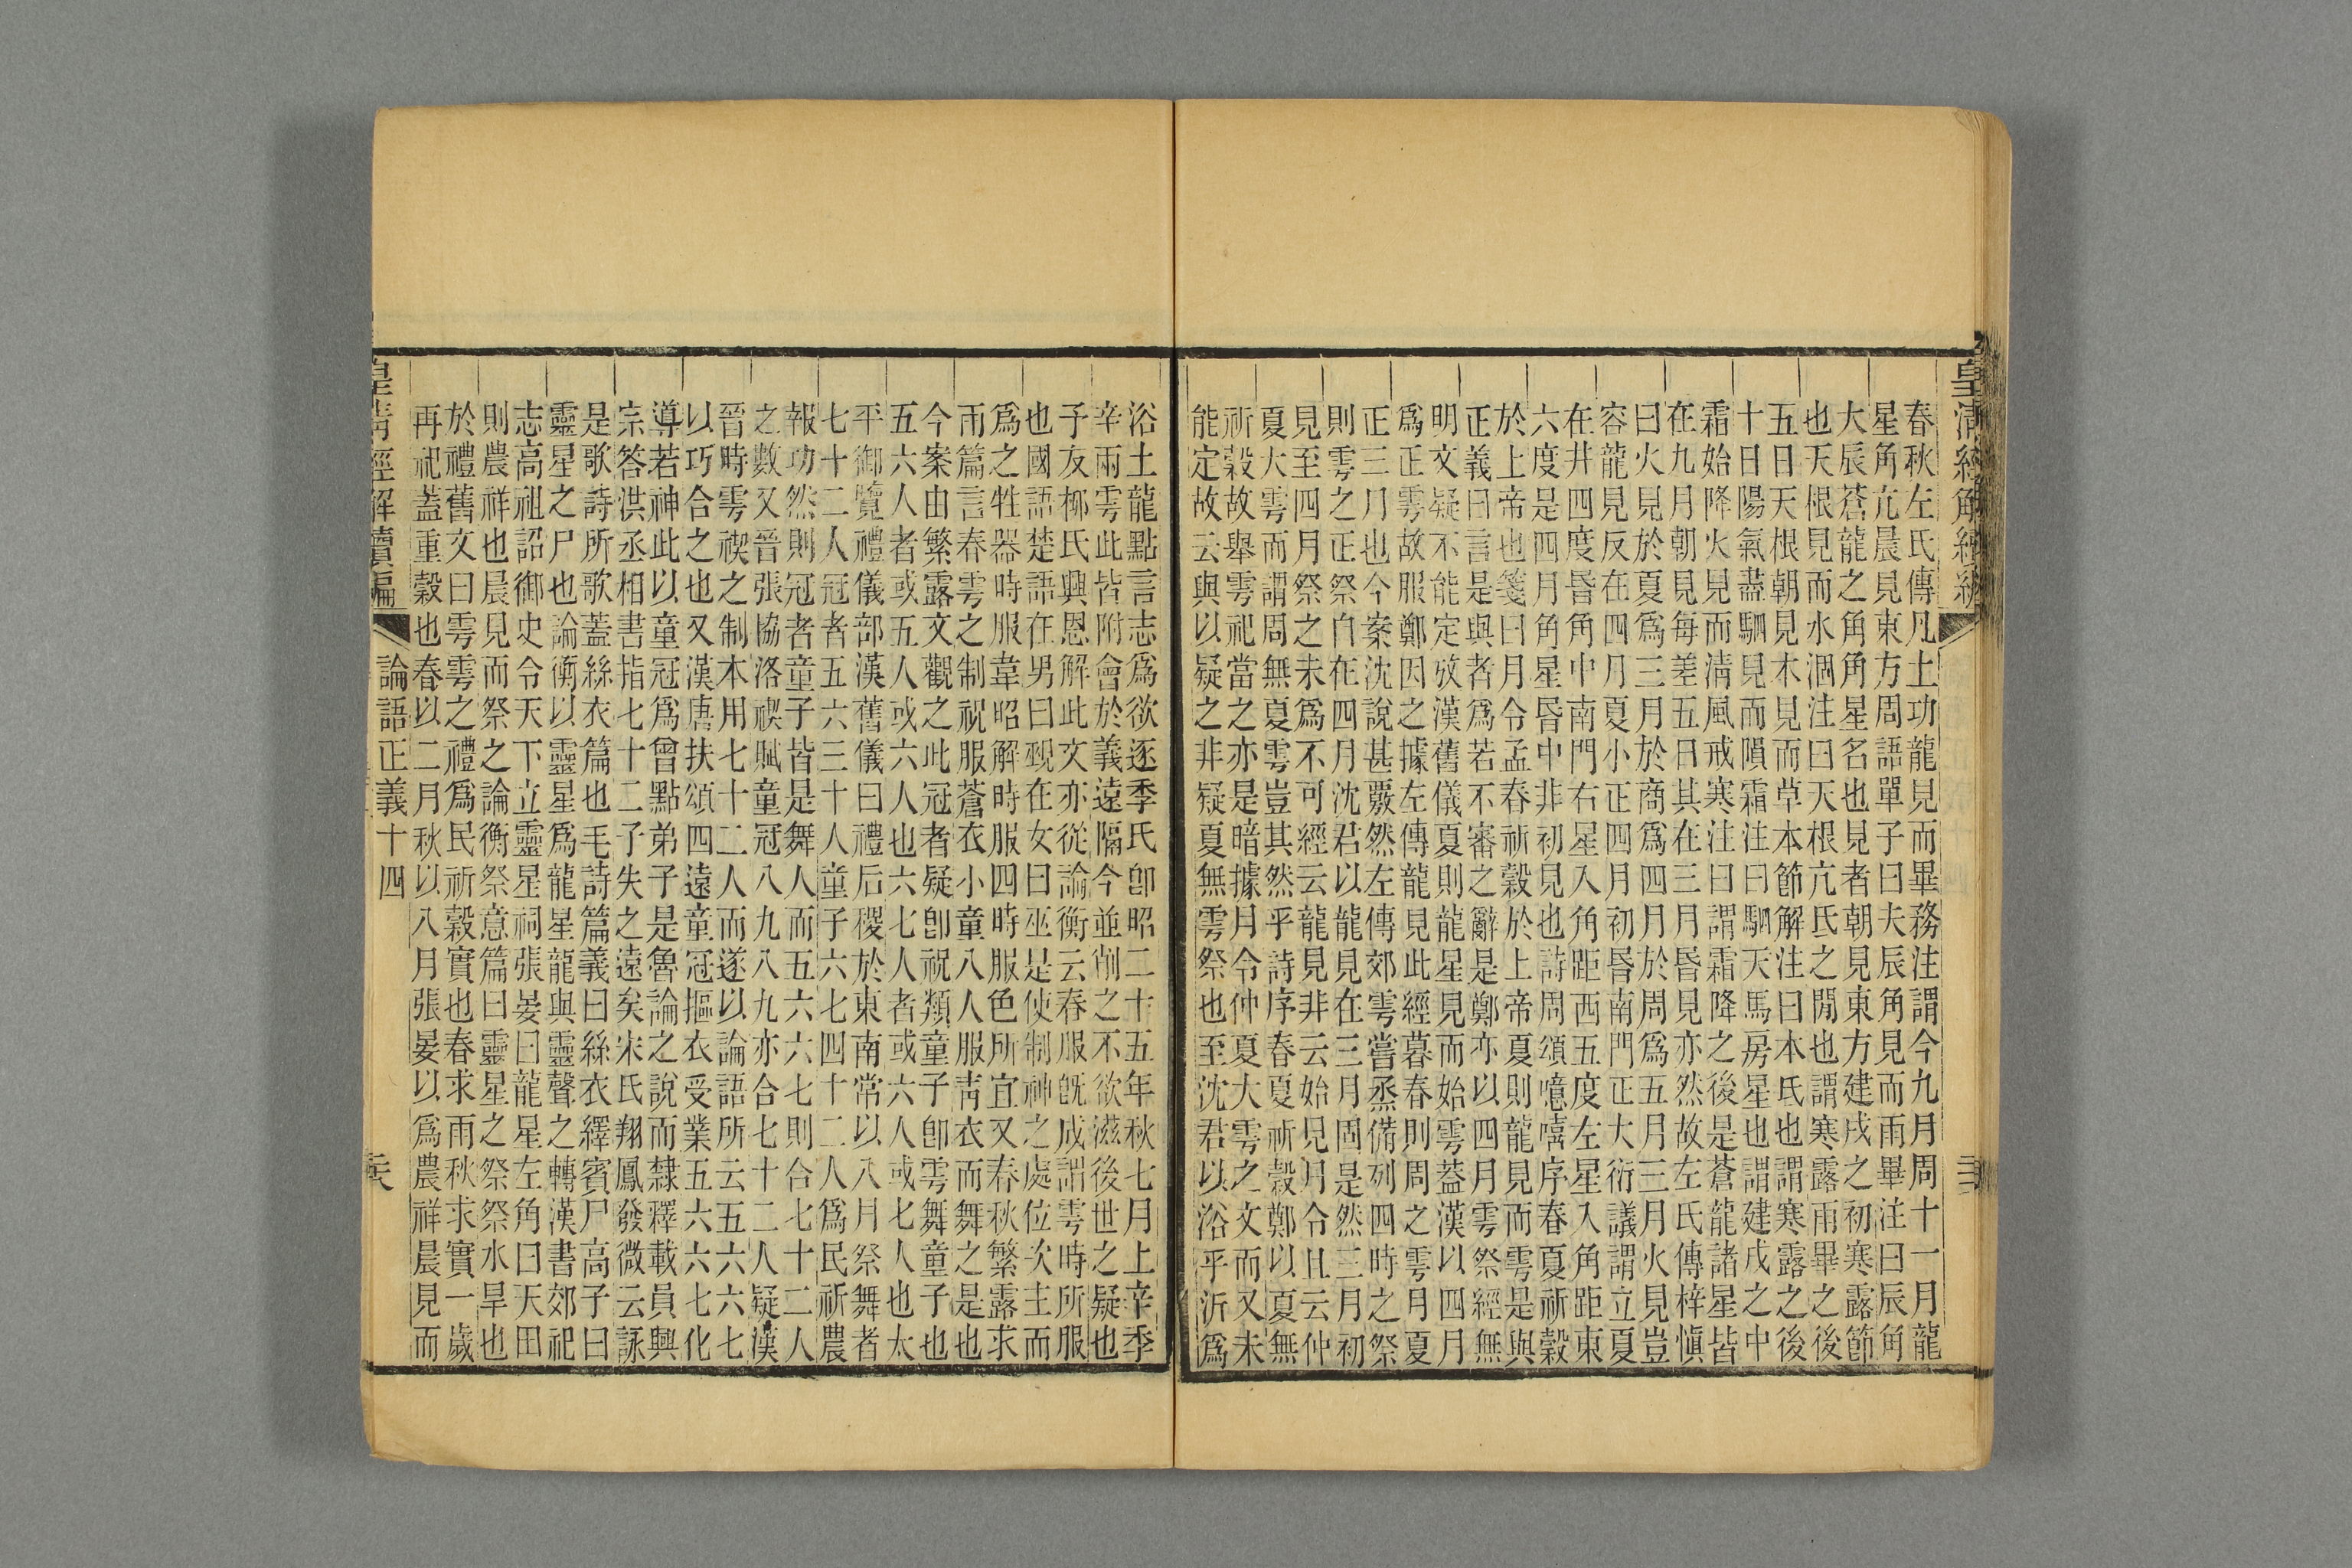 春秋左氏傳凡土功龍見而畢務注謂今九月周十一月龍
星角亢晨見東方周語單子曰夫辰角見而雨畢注曰辰角
大辰蒼龍之角角星名也見者朝見東方建戌之初寒露節
也天根見而水涸注曰天根亢氐之閒也謂寒露雨畢之後
五日天根朝見木見而草本節解注曰本氐也謂寒露之後
十日陽氣盡駟見而隕霜注曰駟天馬房星也謂建戌之中
霜始降火見而淸風戒寒注曰謂霜降之後是蒼龍諸星皆
在九月朝見每差五日其在三月昏見亦然故左氏傳梓愼
曰火見於夏爲三月於商爲四月於周爲五月三月火見豈
容龍見反在四月夏小正四月初昏南門正大衍議謂立夏
在井四度昏角中南門右星入角距西五度左星入角距東
六度是四月角星昏中非初見也詩周頌噫嘻序春夏祈穀
於上帝也箋曰月令孟春祈穀於上帝夏則龍見而雩是與
正義曰言是與者爲若不審之辭是鄭亦以四月雩祭經無
明文疑不能定攷漢舊儀夏則龍星見而始雩葢漢以四月
爲正雩故服鄭因之據左傳龍見此經暮春則周之雩月夏
正三月也今案沈說甚覈然左傳郊雩嘗烝備列四時之祭
則雩之正祭自在四月沈君以龍見在三月固是然三月初
見至四月祭之未爲不可經云龍見非云始見月令且云仲
夏大雩而謂周無夏雩豈其然乎詩序春夏祈穀鄭以夏無
祈穀故舉雩祀當之亦是暗據月令仲夏大雩之文而又未
能定故云與以疑之非疑夏無雩祭也至沈君以浴乎沂爲
浴土龍點言志爲欲逐季氏卽昭二十五年秋七月上辛季
辛兩雩此皆附會於義遠隔今並削之不欲滋後世之疑也
子友栁氏興恩解此文亦從論衡云春服旣成謂雩時所服
也國語楚語在男曰覡在女曰巫是使制神之處位次主而
爲之牲器時服韋昭解時服四時服色所宜又春秋繁露求
雨篇言春雩之制祝服蒼衣小童八人服靑衣而舞之是也
今案由繁露文觀之此冠者疑卽祝類童子卽雩舞童子也
五六人者或五人或六人也六七人者或六人或七人也太
平御覽禮儀部漢舊儀曰禮后稷於東南常以八月祭舞者
七十二人冠者五六三十人童子六七四十二人爲民祈農
報功然則冠者童子皆是舞人而五六六七則合七十二人
之數又晉張協洛禊賦童冠八九八九亦合七十二人疑漢
晉時雩禊之制本用七十二人而遂以論語所云五六六七
以巧合之也又漢唐扶頌四遠童冠摳衣受業五六六七化
導若神此以童冠爲曾點弟子是魯論之說而隸釋載員興
宗答洪丞相書指七十二子失之遠矣宋氏翔鳳發微云詠
是歌詩所歌葢絲衣篇也毛詩篇義曰絲衣繹賓尸高子曰
靈星之尸也論衡以靈星爲龍星龍與靈聲之轉漢書郊祀
志高祖詔御史令天下立靈星祠張晏曰龍星左角曰天田
則農祥也晨見而祭之論衡祭意篇曰靈星之祭祭水旱也
於禮舊文曰雩雩之禮爲民祈穀實也春求雨秋求實一歲
再祀葢重穀也春以二月秋以八月張晏以爲農祥晨見而
皇淸經解續編
論語正義十四